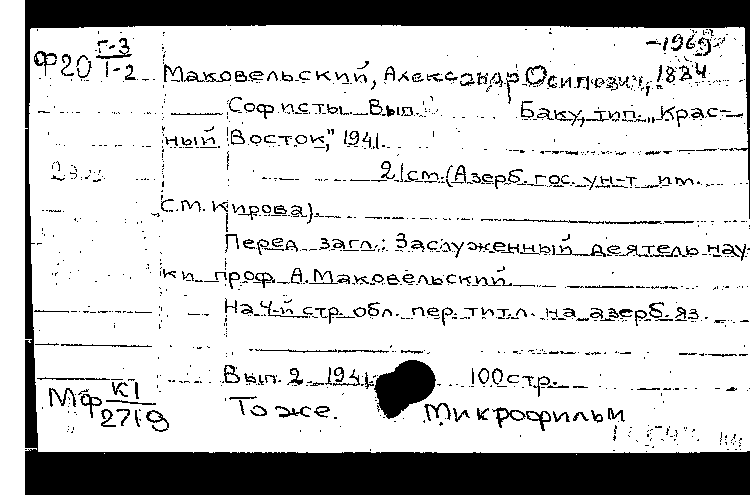 Ф20 Г-3/1-2
-1969
Маковельский, Александр Осипович, 1884
Софисты Вып. Баку, тип. „Крас-
ный Восток," 1941.
21см. (Азерб. гос. ун-т им.
С.М. Кирова).
Перед загл.: Заслуженный деятель нау-
ки проф. А. Маковельский.
На 4-й стр. обл. пер. титл. на азерб. яз.
Вып. 2. 1941. 100 стр.
Мф К1/2719
То же. Микрофильм